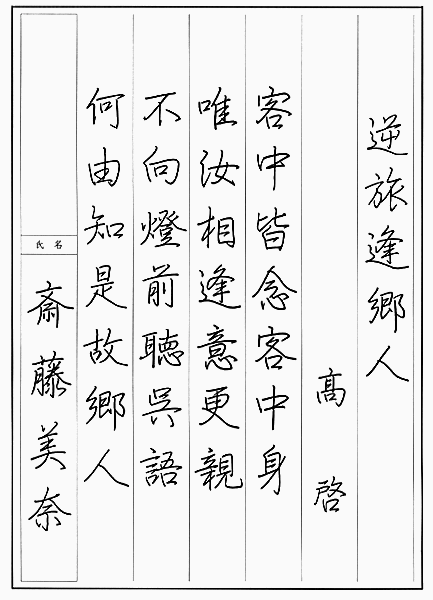 逆旅逢郷人
高啓
客中皆念客中身
唯汝相逢意更親
不向燈前聴呉語
何由知是故郷人
氏名
斎藤美奈